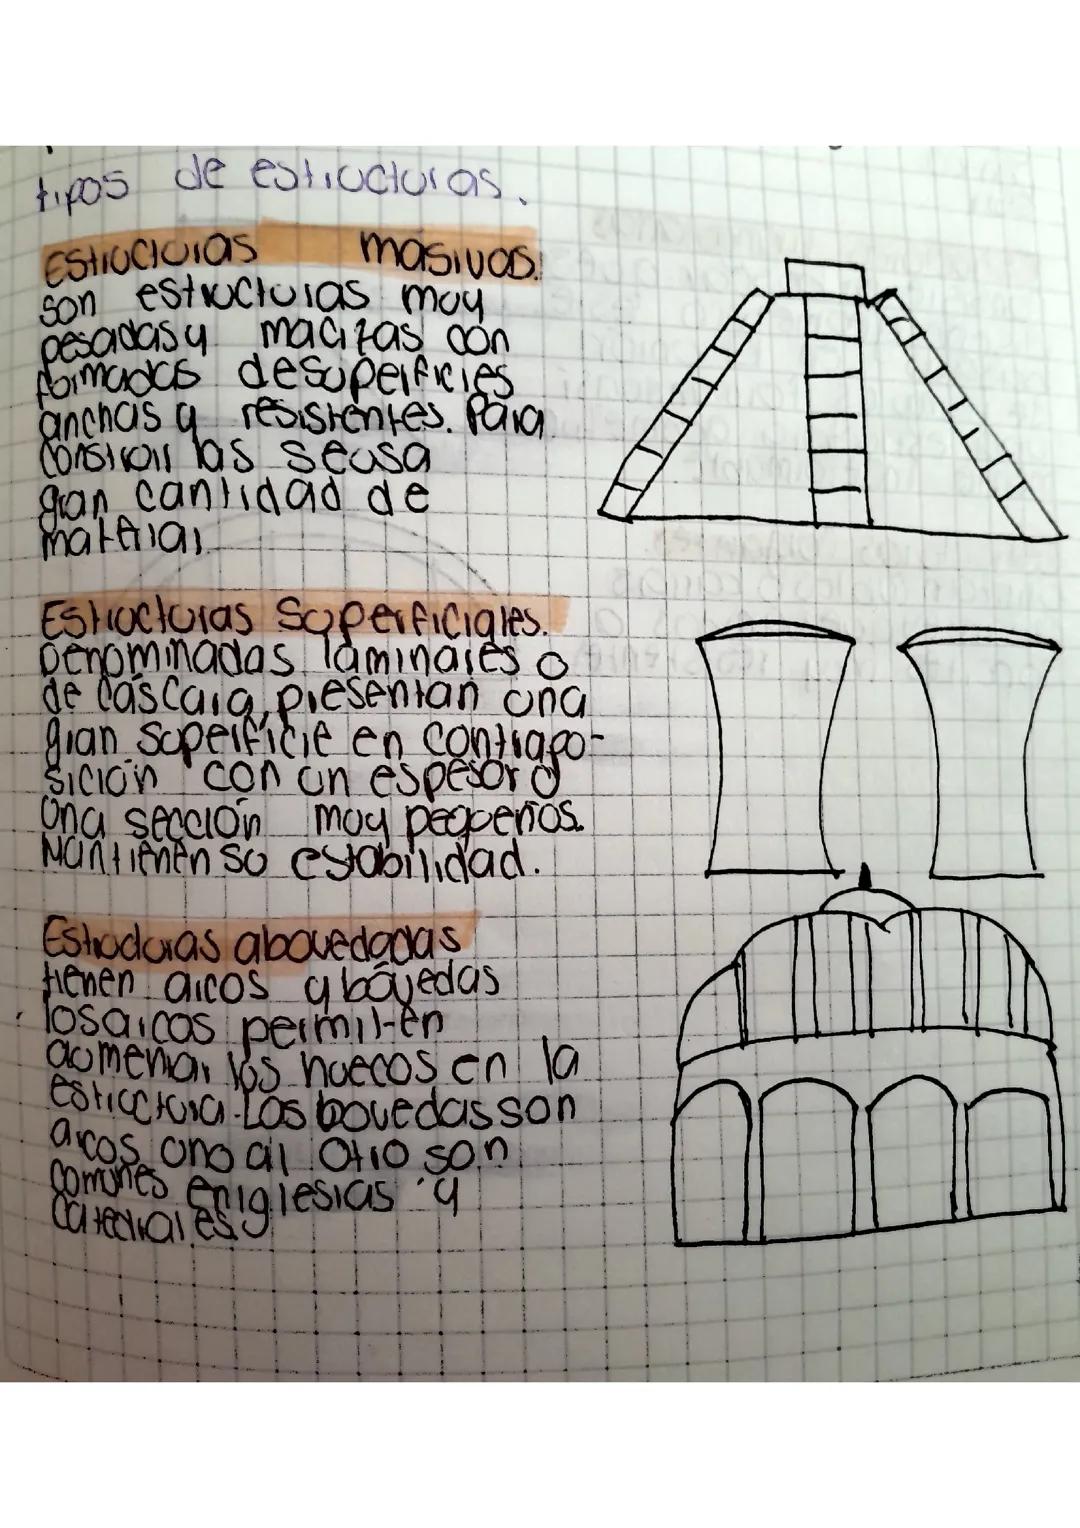 tipos de estructuras.
Estructuras masivas.
son estructuras muy
pesadas y macizas con
formadas de superficies
anchas y resistentes. Para
construir las se usa
gran cantidad de
material
Estructuras Superficiales.
Denominadas laminares o
de cáscara, presentan una
gran superficie en contrapo-
sición con un espesor o
una sección muy pequeños.
Mantienen su estabilidad.
Estructuras abovedadas
tienen arcos y bóvedas
los arcos permiten
aumentar los huecos en la
estructura. Las bovedas son
arcos uno al otro son
comunes en iglesias y
catedrales